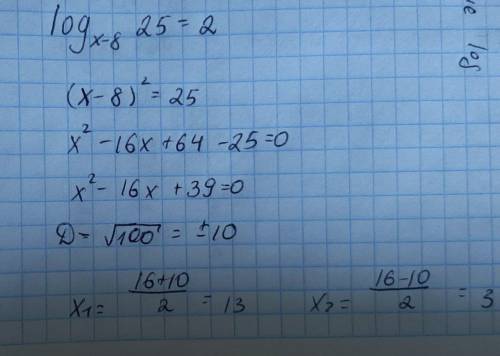 log_{x-8} 25 = 2
(x-8)² = 25
x² - 16x + 64 - 25 = 0
x² - 16x + 39 = 0
D = √100 = ±10
x₁ = \frac{16+10}{2} = 13 x₂ = \frac{16-10}{2} = 3
log